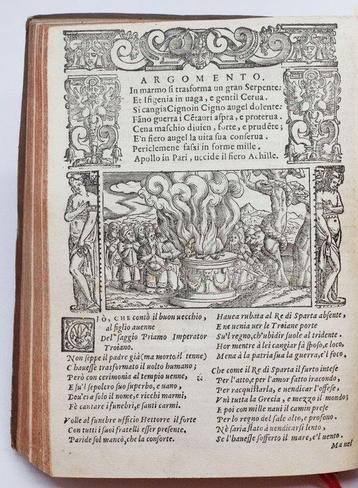 ARGOMENTO.
In marmo si trasforma un gran Serpente.
Et Ifigenia in uaga, e gentil Cerua.
Si cangia Cigno in Cigno augel dolente.
Fāno guerra i Cētauri aspra, e proterua.
Cena maschio diuien, forte, e prudēte;
E'n fiero augel la uita sua conserua.
Periclemene fassi in forme mille.
Apollo in Pari, uccide il fiero Achille.
CIÒ, CHE contò il buon uecchio,
al figlio auenne
Del saggio Priamo Imperator
Troiano.
Non seppe il padre già (ma morto il tenne)
C'hauesse trasformato il volto humano;
Però con cerimonia al tempio uenne,
E su'l sepolcro suo superbo, e uano,
Dou'era solo il nome, e ricchi marmi,
Fè cantare i funebri, e santi carmi.
Volle al funebre ufficio Hettorre il forte
Con tutti i suoi fratelli esser presente,
Paride sol mancò, che la consorte
Hauea rubata al Re di Sparta absente,
E ne uenia uer le Troiane porte
Su'l regno, ch'ubidir suole al tridente.
Hor mentre à lei cangiar fà sposo, e loco,
Mena à la patria sua la guerra, e'l foco.
Che come il Re di Sparta il furto intese
Per l'atto, e per l'amor fatto iracondo,
Per racquistarla, e uendicar l'offese,
Vnì tutta la Grecia, e mezzo il mondo;
E poi con mille naui il camin prese
Per lo regno del sale alto, e profondo.
Nè saria stato à uendicarsi lento,
Se l'hauesse sofferto il mare, e'l uento.
Ma nel